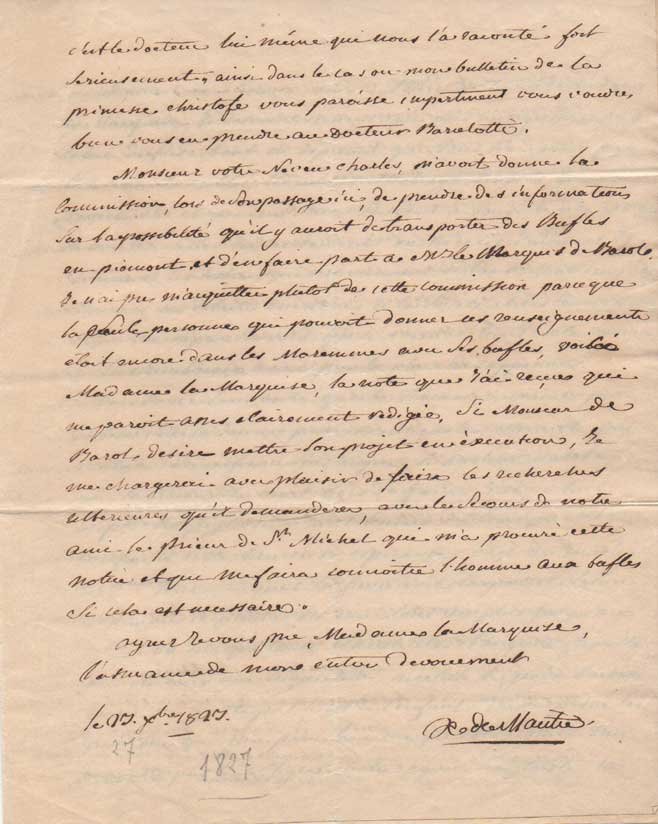 c'est le docteur lui même qui nous l'a raconté fort
serieusement, ainsi dans le cas ou mon bulletin de la
princesse christofe vous paroisse impertinent vous voudrez
bien vous en prendre au Docteur Barelotti.
Monsieur votre Neveu Charles, m'avoit donné la
Commission, lors de son passage ici, de prendre des informations
sur la possibilité qu'il y auroit de transporter des Bufles
en piemont et d'en faire part a Mr le Marquis de Barol.
Je n'ai pu m'acquitter plutot de cette commission parceque
la seule personne qui pouvoit donner ces renseignements
etoit encore dans les Maremmes avec ses bufles, voila
Madame la Marquise, la note que j'ai reçue qui
me paroit assés clairement redigée, Si Monsieur de
Barol desire mettre son projet en exécution, Je
me chargerai avec plaisir de faire les recherches
ulterieures qu'il demandera, avec les secours de notre
ami le Prieur de St Michel qui m'a procuré cette
notice et qui me faira connoitre l'homme aux bufles
si cela est necessaire.
agreez je vous prie, Madame la Marquise,
l'assurance de mon entier devouement
le 27. xbre 1827.
X. de Maistre.
27
1827